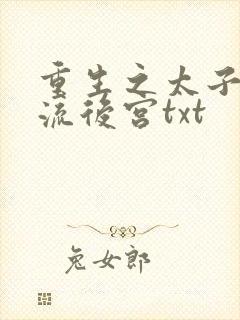 重生之太子
流後宮txt
兔女郎